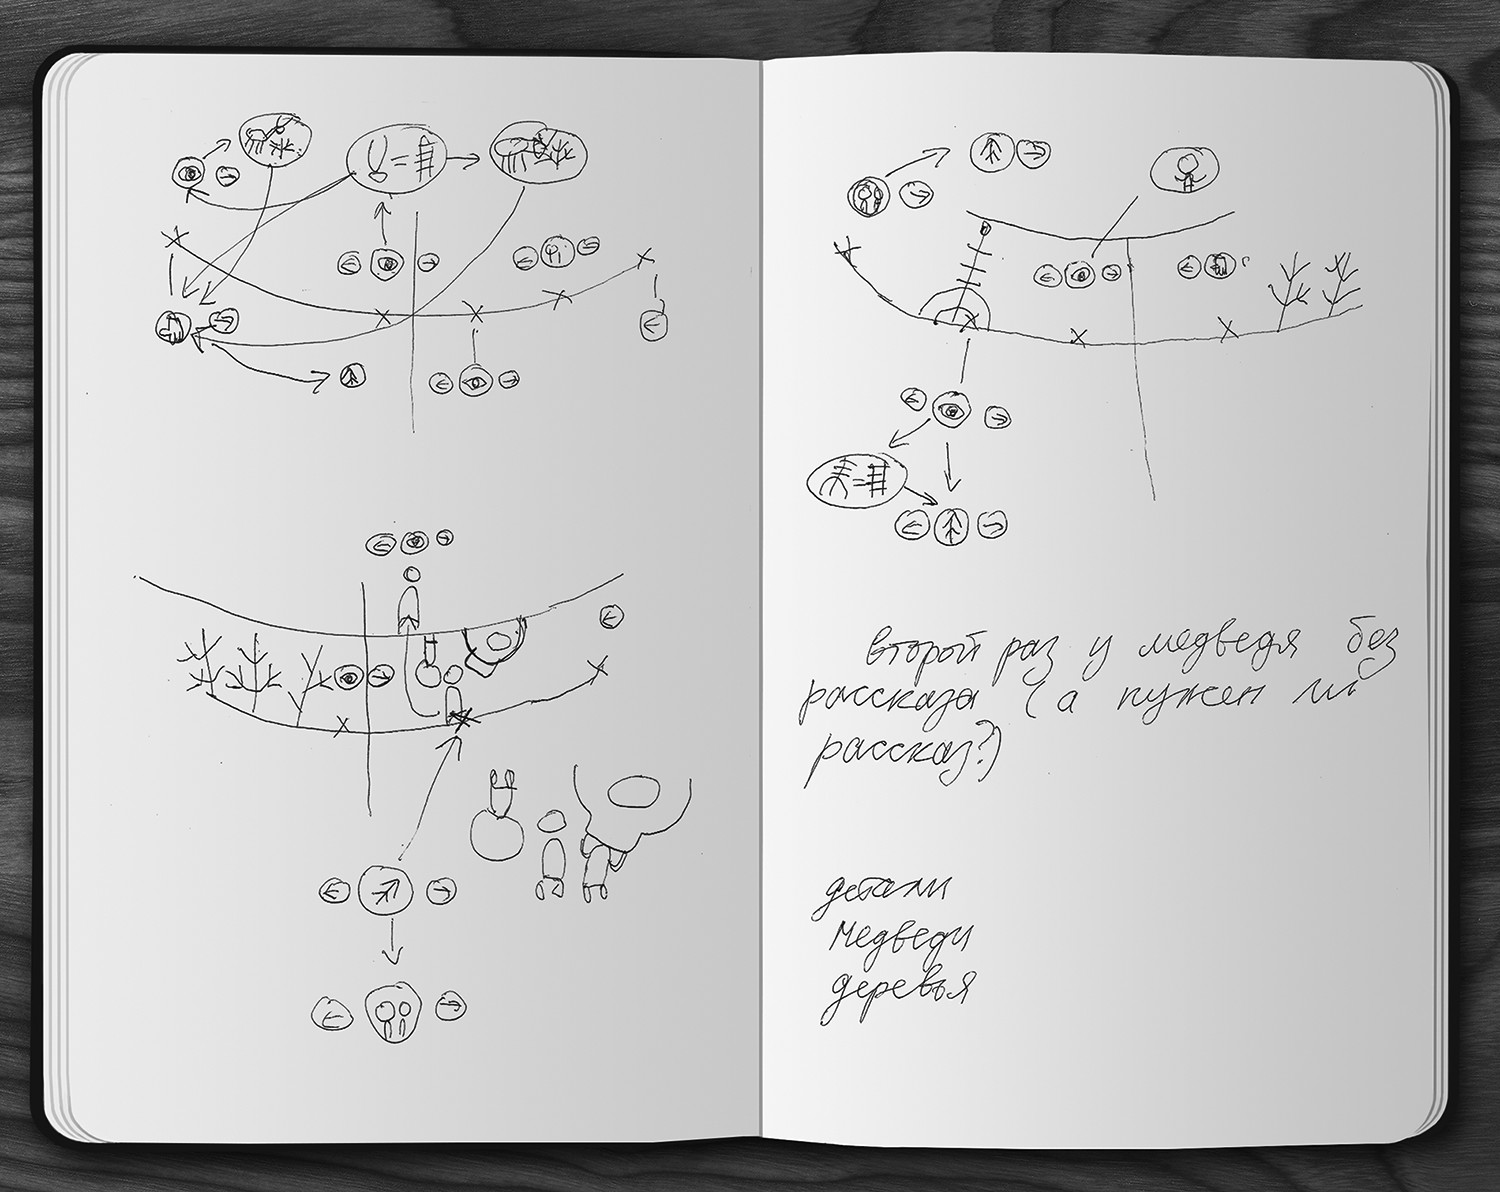 второй раз у медведя без
рассказа (а нужен ли
рассказ?)
детали
Медведи
деревья